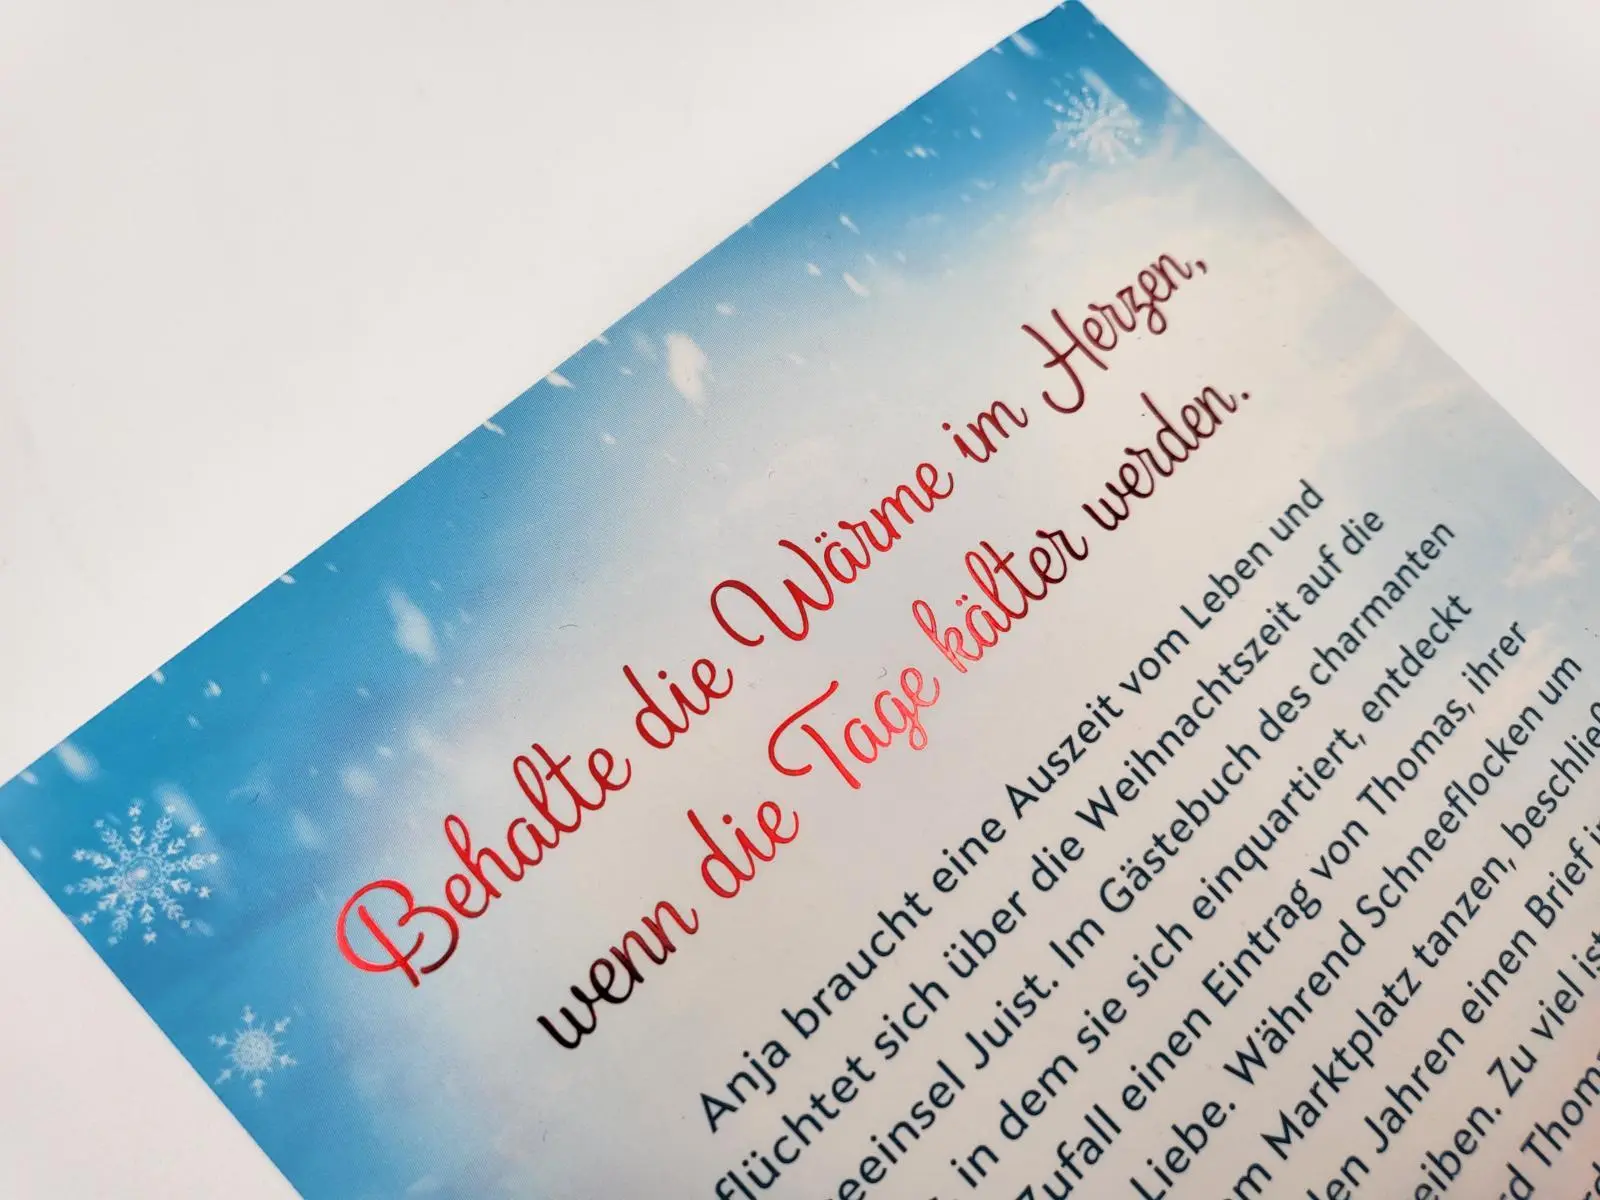 Behalte die Wärme im Herzen,
wenn die Tage kälter werden.
Anja braucht eine Auszeit vom Leben und
flüchtet sich über die Weihnachtszeit auf die
Juist. Im Gästebuch des charmanten
in dem sie sich einquartiert, entdeckt
einen Eintrag von Thomas, ihrer
Liebe. Während Schneeflocken um
Marktplatz tanzen,
Jahren einen Brief
Zu viel ist